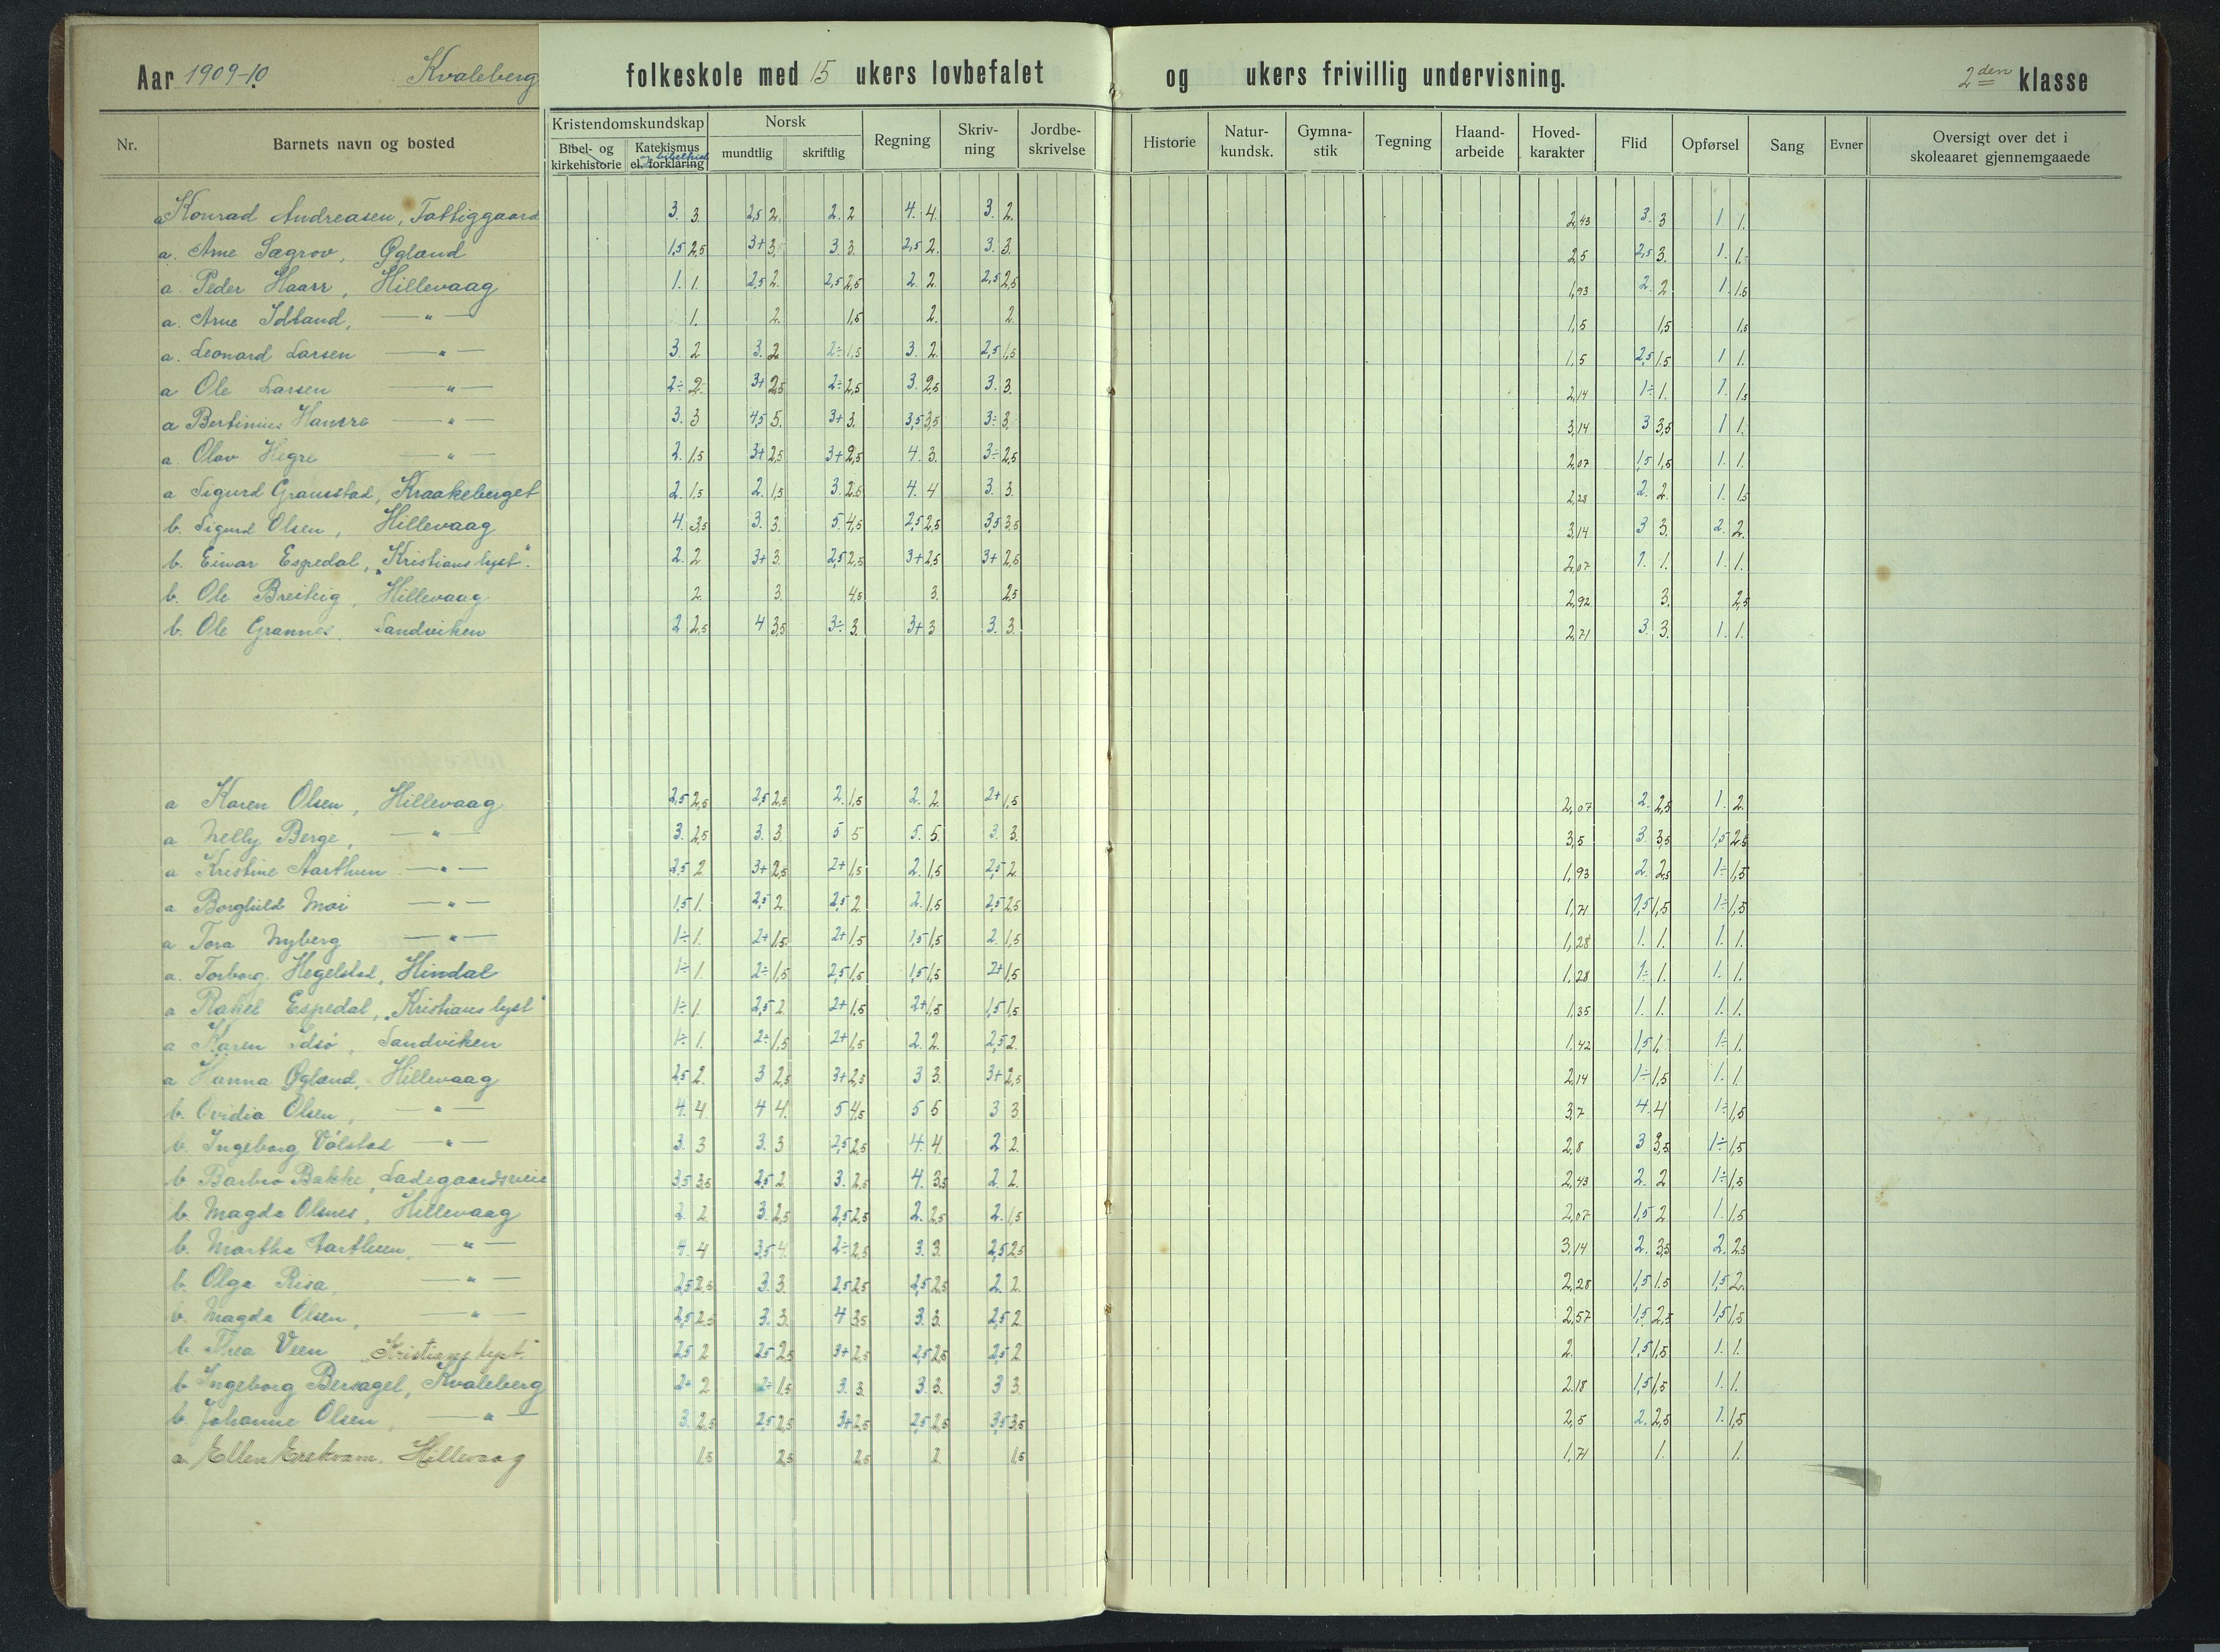 Aar 1909-10. Kvaleberg folkeskole med 15 ukers lovbefalet og ukers frivillig undervisning. 2den klasse
Nr. Barnets navn og bosted Kristendomskundskap Bibel- og kirkehistorie Katekismus el. forklaring og bibelhist Norsk mundtlig skriftlig Regning Skriv- ning Jordbe- skrivelse Historie Natur- kundsk. Gymna- stik Tegning Haand- arbeide Hoved- karakter Flid Opførsel Sang Evner Oversigt over det i skoleaaret gjennemgaaede
a Konrad Andreasen, Fattiggaard 3. 3. 2,5 2. 2. 2 4. 4. 3. 2. 2,43 3. 3 1. 1.
a. Arne Sægrov, Øgland 1,5 2,5 3+ 3. 3 3. 2,5 2. 3. 3. 2,5 2,5 3. 1. 1.
a. Peder Haarr, Hillevaag 1. 1. 2,5 2. 2,5 2,5 2. 2. 2,5 2,5 1,93 2. 2 1. 1.5
a. Arne Idland, —"— 1. 2. 1,5 2. 2. 1,5 1,5 1,5
a. Leonard Larsen —"— 3. 2 3. 2 2÷ 1,5 3. 2. 2,5 1,5 1,5 2,5 1.5 1 1.
a Ole Larsen —"— 2÷ 2. 3+ 2,5 2÷ 2,5 3. 2,5 3. 3. 2,14 1÷ 1. 1. 1,5
a Bertinius —"— 3. 3 4,5 5. 3+ 3. 3,5 3,5 3÷ 3. 3,14 3 3,5 1 1.
a. Olav Hegre —"— 2. 1,5 3+ 2,5 3+ 2,5 4. 3. 3÷ 2,5 2,07 1,5 1,5 1. 1.
a Sigurd Graustad, Kraakeberget 2. 1,5 2. 1,5 3. 2,5 4. 4 3. 3. 2,28 2. 2. 1. 1,5
b. Sigurd Olsen, Hillevaag 4. 3,5 3. 3. 5. 4,5 2,5 2,5 3,5 3,5 3,14 3 3. 2. 2.
b. Einar Espedal, „Kristianslyst". 2. 2 3+ 3. 2,5 2,5 3+ 2,5 3+ 2,5 2,07 1. 1. 1. 1.
b. Ole Breiteig, Hillevaag 2. 3. 4,5 3. 2,5 2,92 3. 2,5
b. Ole Grannes, Sandviken 2 2,5 4 3,5 3÷ 3. 3+ 3 3. 3. 2,71 3. 3. 1. 1.
a Karen Olsen, Hillevaag 2,5 2,5 2,5 2,5 2. 1,5 2. 2. 2+ 1,5 2,07 2. 2,5 1. 2.
a Nelly Berge, —"— 3. 2,5 3. 3. 5 5 5. 5. 3. 3. 3,5 3. 3,5 1,5 2,5
a Kristine Aarthun —"— 2,5 2 3+ 2,5 2+ 1,5 2. 1,5 2,5 2. 1,93 2. 2,5 1÷ 1,5
a Borghild Moi —"— 1,5 1. 2,5 2. 2,5 2. 2. 1,5 2,5 2,5 1,71 1,5 1,5 1÷ 1,5
a Tora Nyberg —"— 1÷ 1. 2+ 1,5. 2+ 1,5 1,5 1,5 2. 1,5 1,28 1. 1. 1. 1.
a. Torborg Hegelstad, Hindal 1÷ 1. 2÷ 1,5 2,5 1,5 1,5 1,5 2+ 1,5 1,28 1÷ 1. 1. 1.
a Rakel Espedal, „Kristianslyst" 1÷ 1. 2,5 2. 2+ 1,5 2+ 1,5 1,5 1,5 1,35 1. 1. 1. 1.
a Karen Idsö, Sandviken 1÷ 1. 2÷ 1,5 2+ 1,5 2. 2. 2,5 2. 1,42 1,5 1. 1÷ 1.
a Hanna Øgland, Hillevaag 2,5 2. 3 2,5 3+ 2,5 3 3. 3+ 2,5 2,14 1÷ 1,5 1. 1.
b. Ovidia Olsen, —"— 4. 4. 4 4. 5 4,5 5 5 3 3. 3,7 4. 4 1÷ 1,5
b. Ingeborg Völstad —"— 3. 3 3. 3 2,5 2,5 4. 4. 2 2. 2,8 3 3,5 1÷ 1,5
b Barbro Bakke, Ladegaardsveie 3,5 3,5 2,5 2. 3. 2,5 4. 3,5 2. 2. 2,43 2. 2 1÷ 1,5
b. Magda Olsnes, Hillevaag 2. 2. 3. 2,5 2,5 2,5 2. 2,5 2. 1,5 2,07 1,5 2 1. 1,5
b. Martha Aarthun, —"— 4. 4 3,5 4. 2÷ 2,5 3. 3. 2,5 2,5 3,14 2. 3,5 2. 2,5
b. Olga Risa, —"— 2,5 2,5 3. 3. 2,5 2,5 2,5 2,5 2. 2. 2,28 1,5 1.5 1,5 2.
b. Magda Olsen, —"— 2,5 2,5 3. 3. 4 3,5 3. 3. 2,5 2. 2,57 1,5 2,5 1,5 1,5
b. Thea Veen „Kristianslyst." 2,5 2 2,5 2,5 3+ 2,5 2,5 2,5 2,5 2 2. 1,5 1,5 1. 1.
b Ingeborg Bersagel, Kvaleberg 2÷ 2 2÷ 1,5 3. 3. 3. 3. 3 3. 2.18 1,5 1,5 1. 1.
b. Johanne Olsen, —"— 3. 2,5 2,5 2,5 3+ 2,5 2,5 2,5 3,5 3,5 2,5 2. 2,5 1. 1,5
a. Ellen Hillevaag 1,5 2,5 2,5 2. 1,5 1,71 1. 1.